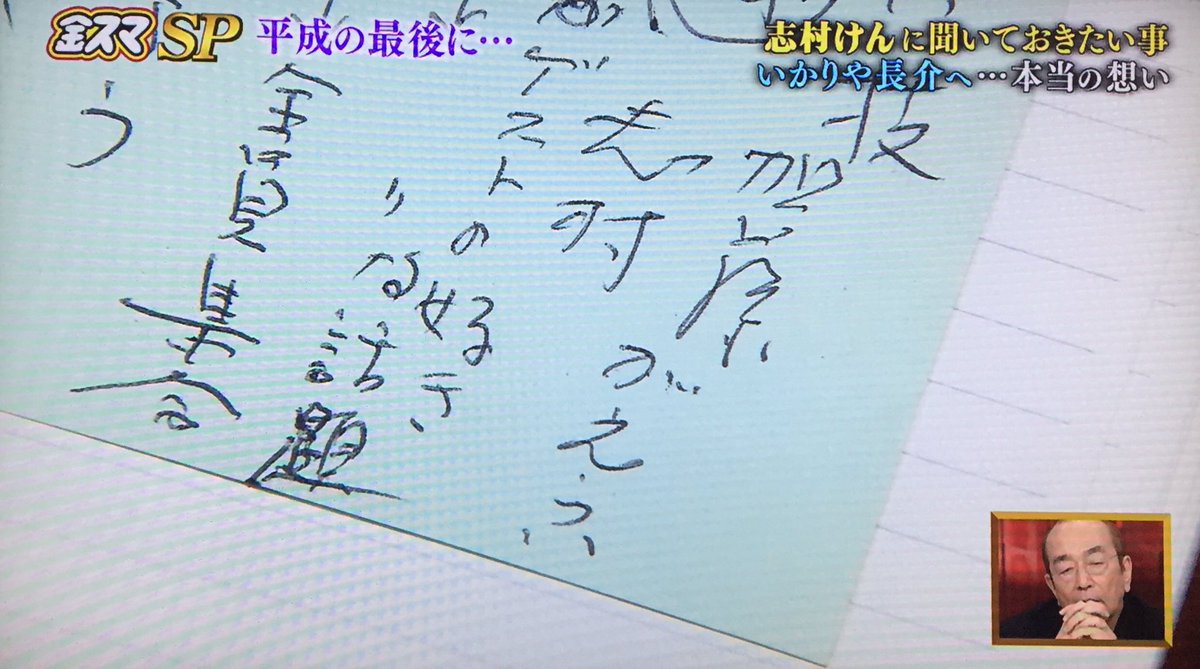 金スマSP 平成の最後に…
志村けんに聞いておきたい事
いかりや長介へ…本当の想い
技
志村が
ゲストの好き
〃な話題
全員集合
う